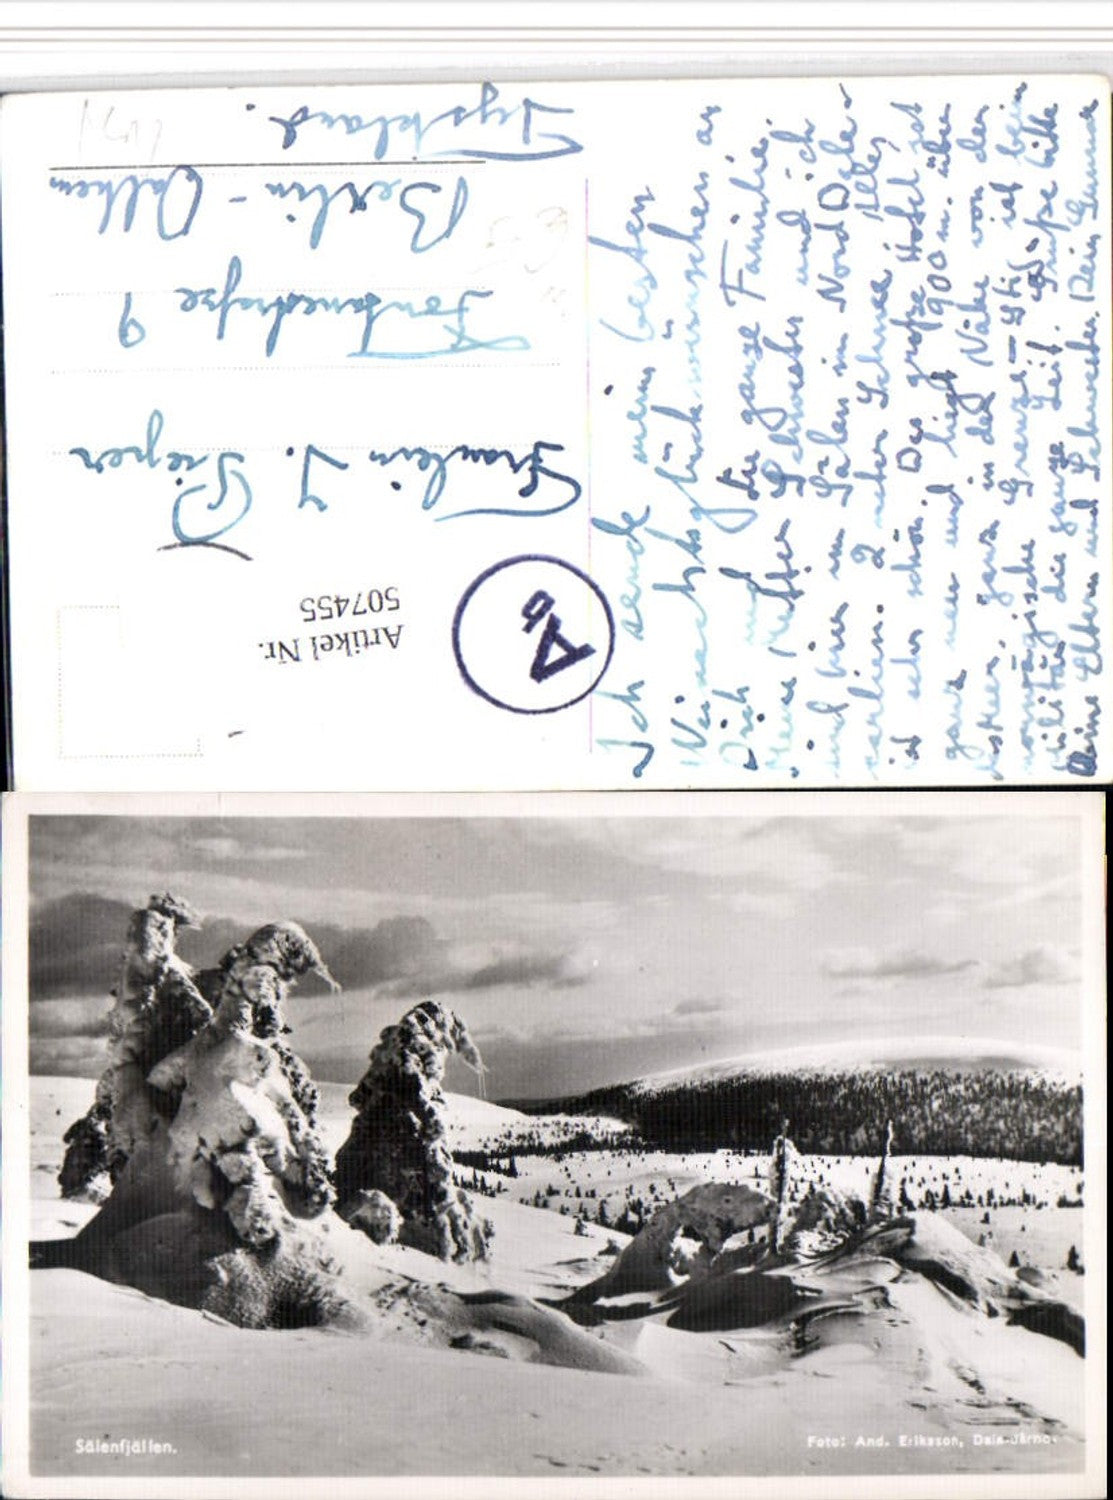 Ich sende mein besten
Weinachtsglückwünschen an
Dich und die ganze Familie.
Meine Mutter Schwester und ich
sind hier in Sälen in Nord Dale-
carlien. 2 meter Schnee, Alles
ist sehr schön. Das große Hotel ist
ganz neu und liegt 900 m. über
das Meer, ganz in der Nähe von der
norwägische Grenze. Stig ist bein
Militär die ganze Zeit. Grüße bitte
Deine Eltern und Schwester. Dein Gunnar
Fräulein I. Pieper
Fontanestraße 9
Berlin - Dalhem
Tyskland.
Artikel Nr.
507455
Ab
Sälenfjällen.
Foto: And. Eriksson, Dala-Järna.